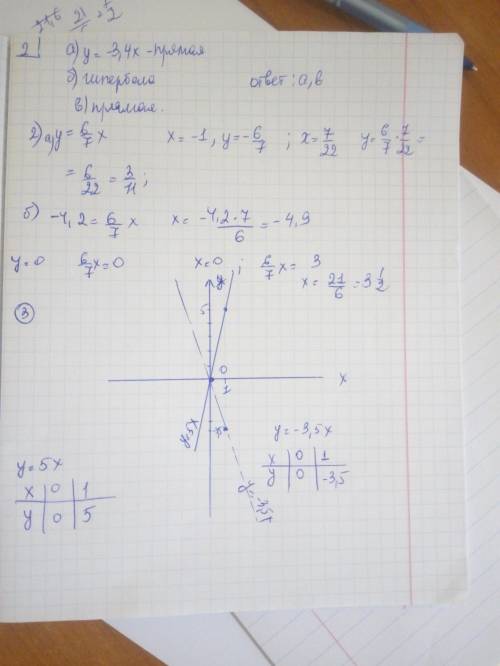 21
2] а) y = -3,4x - прямая
б) гипербола ответ: а, в
в) прямая.
2) а) y = 6/7 x x = -1, y = -6/7 ; x = 7/22 y = 6/7 · 7/22 =
= 6/22 = 3/11 ;
б) -4,2 = 6/7 x x = -4,2·7/6 = -4,9
y = 0 6/7 x = 0 x = 0 ; 6/7 x = 3
x = 21/6 = 3 1/2
3
y
5
0
1
x
y=5x
y = -3,5x
x | 0 | 1
y | 0 | -3,5
y=-3,5x
y = 5x
x | 0 | 1
y | 0 | 5